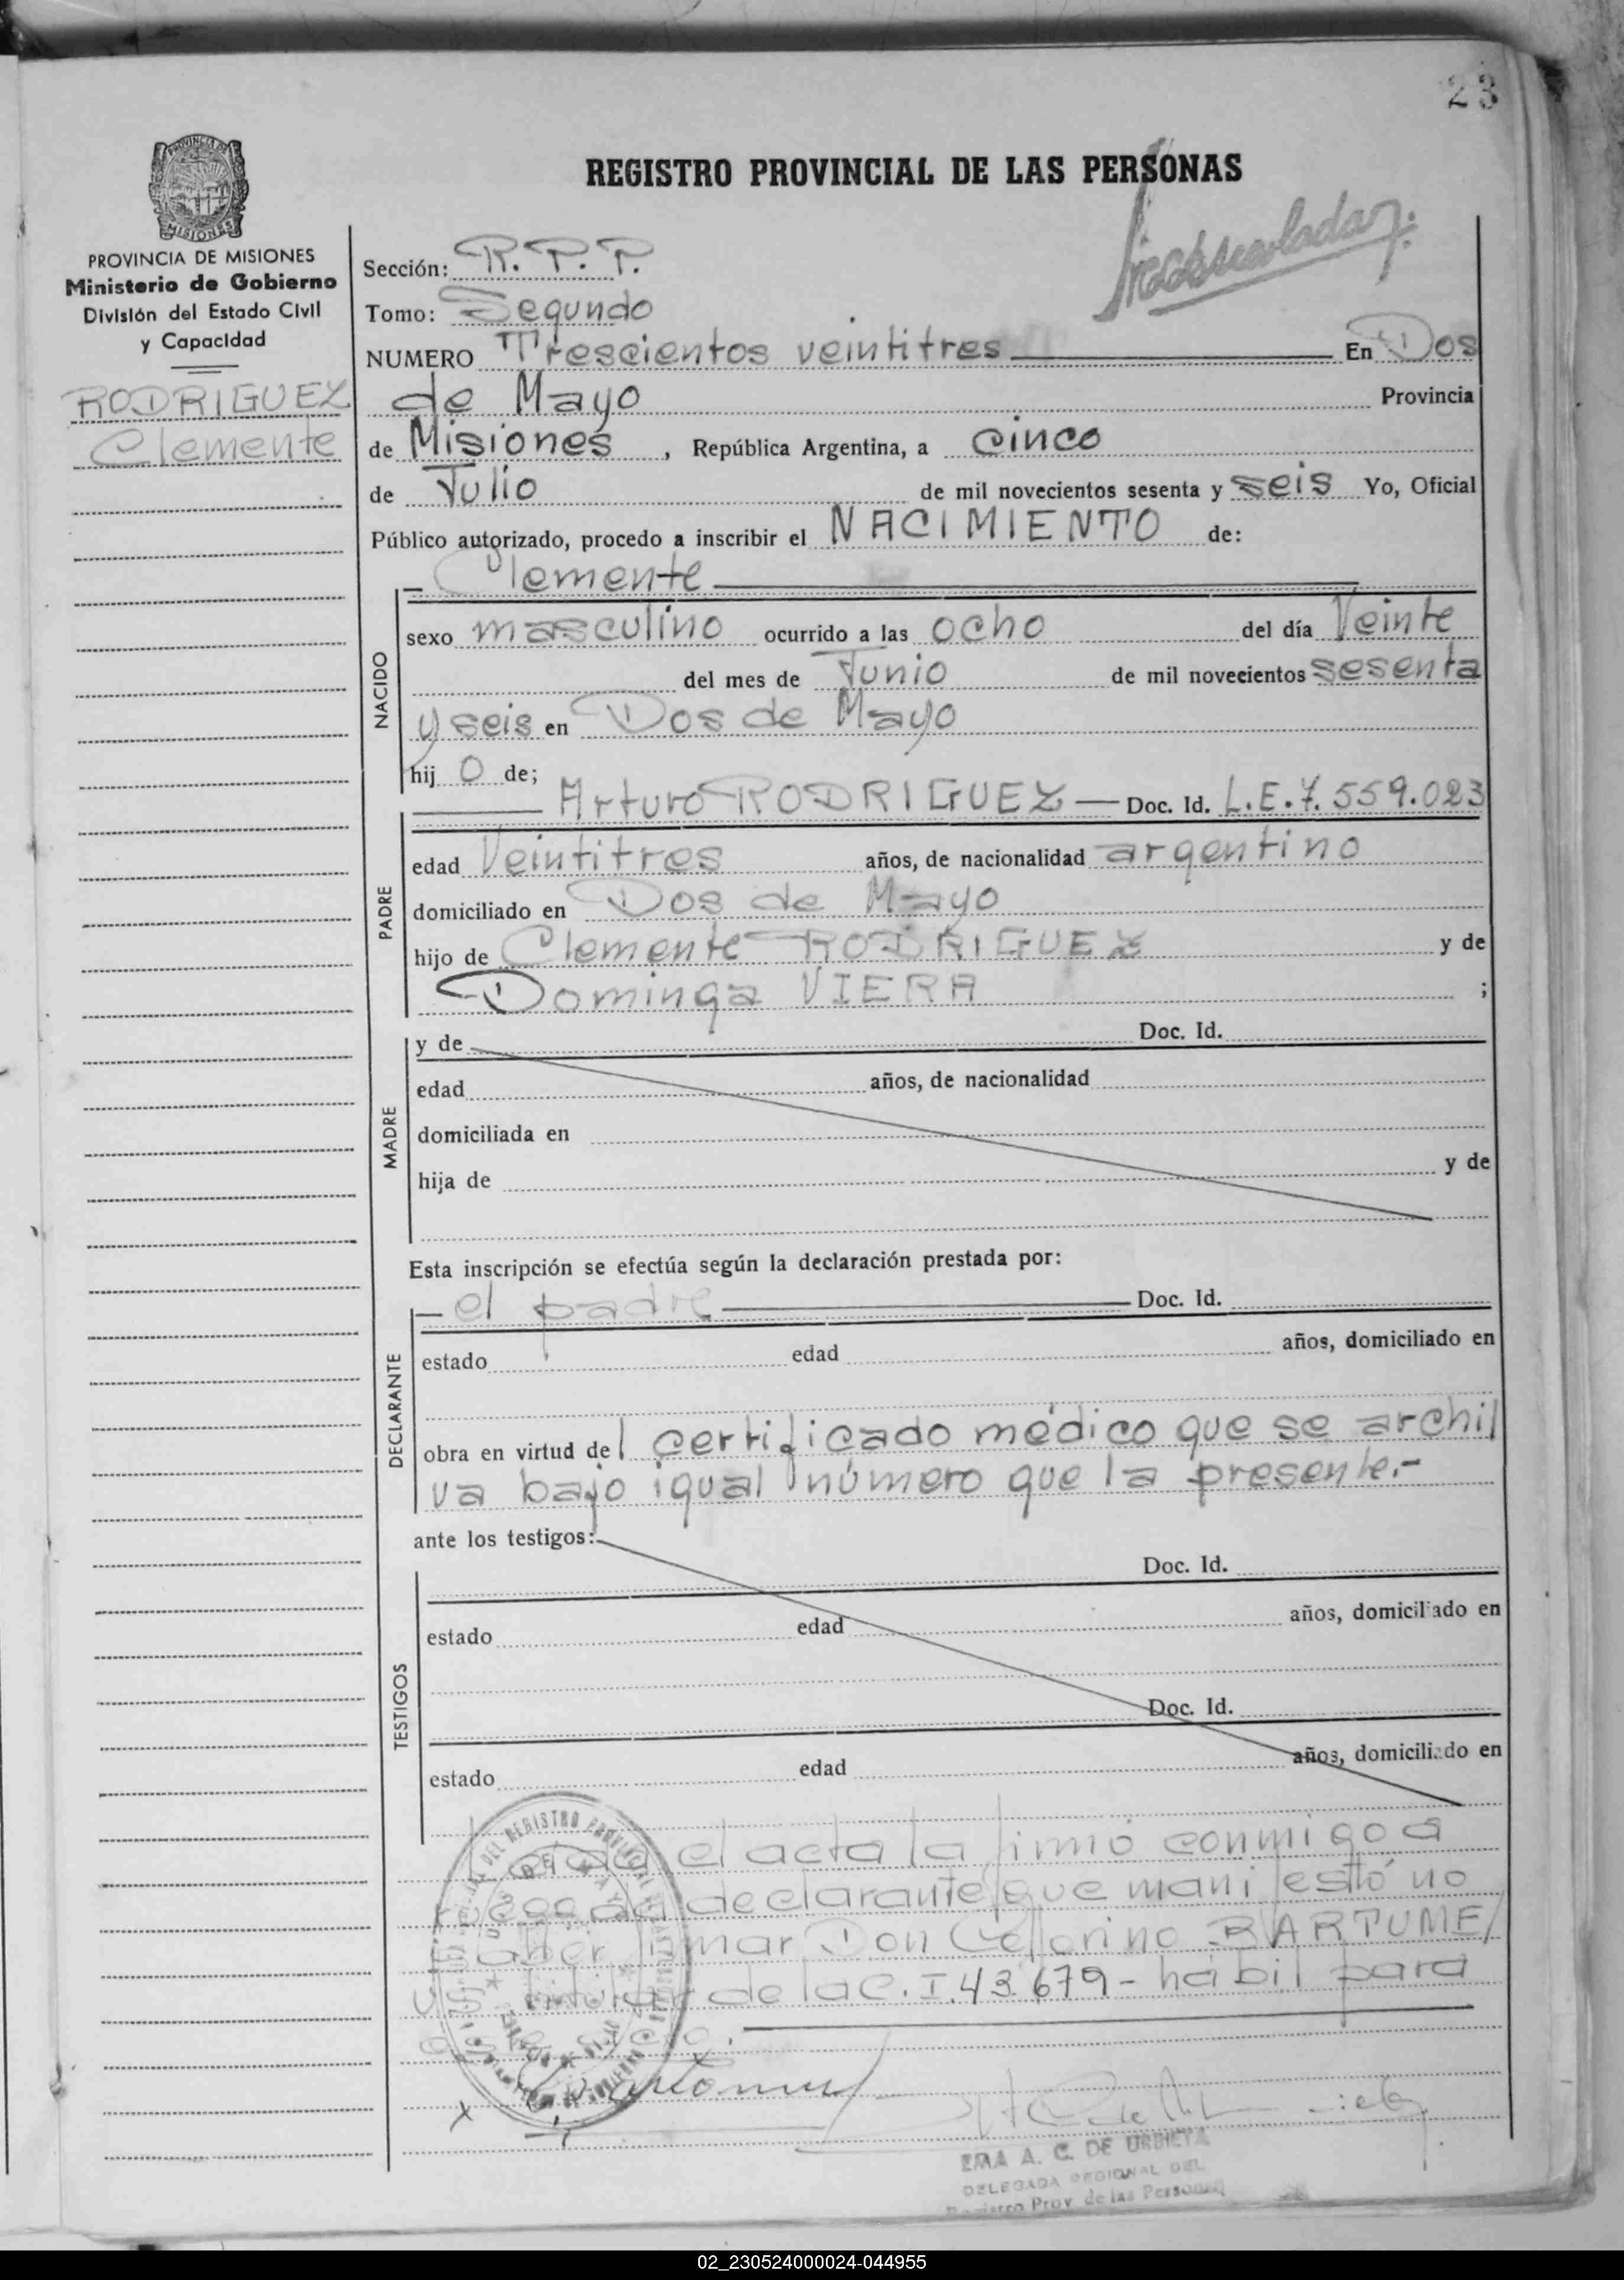 23
REGISTRO PROVINCIAL DE LAS PERSONAS
PROVINCIA DE MISIONES
Ministerio de Gobierno
División del Estado Civil
y Capacidad
RODRIGUEZ
Clemente
Sección: R. P. P.
Tomo: Segundo
NUMERO Trescientos veintitres En Dos
de Mayo Provincia
de Misiones, República Argentina, a cinco
de Julio de mil novecientos sesenta y seis Yo, Oficial
Público autorizado, procedo a inscribir el NACIMIENTO de:
Clemente
NACIDO
sexo masculino ocurrido a las ocho del día Veinte
del mes de Junio de mil novecientos sesenta
y seis en Dos de Mayo
hij o de;
Arturo RODRIGUEZ — Doc. Id. L.E.7.559.023
PADRE
edad Veintitres años, de nacionalidad argentino
domiciliado en Dos de Mayo
hijo de Clemente RODRIGUEZ y de
Dominga VIERA ;
MADRE
y de Doc. Id.
edad años, de nacionalidad
domiciliada en
hija de y de
Esta inscripción se efectúa según la declaración prestada por:
— el padre — Doc. Id.
DECLARANTE
estado edad años, domiciliado en
obra en virtud del certificado médico que se archi
va bajo igual número que la presente.-
ante los testigos:
TESTIGOS
Doc. Id.
estado edad años, domiciliado en
Doc. Id.
estado edad años, domiciliado en
el acta la firmó conmigo a
ruego del declarante que manifestó no
saber firmar Don Ceferino BARTUME/
US titular de la C.I. 43.679- hábil para
DEL REGISTRO PROVINCIAL
DOS DE MAYO
EMA A. C. DE URBIETA
DELEGADA REGIONAL DEL
Registro Prov. de las Personas
02_230524000024-044955